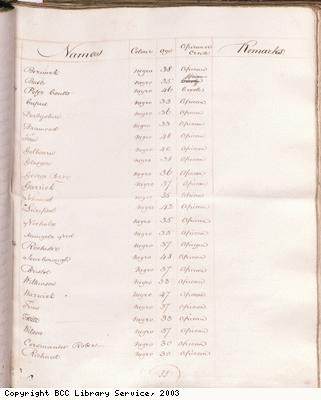 Names Colour Age African or Creole Remarks
Berwick Negro 38 African
Bath Negro 35 African
Pope Negro 46 Creole
Cupid Negro 33 African
Derbyshire Negro 36 African
Drummond Negro 33 African
Negro 48 African
Negro 40 African
Glasgow Negro 38 African
George Negro 36 African
Garrick Negro 37 African
Negro 35 African
Liverpool Negro 43 African
Nicholas Negro 35 African
Negro 35 African
Rochester Negro 37 African
Scarborough Negro 48 African
Bristol Negro 37 African
Wilkinson Negro 33 African
Warwick Negro 47 African
Negro 37 African
Negro 33 African
Wilson Negro 37 African
Coromantee Robert Negro 30 African
Richard Negro 30 African
Copyright BCC Library Service, 2003